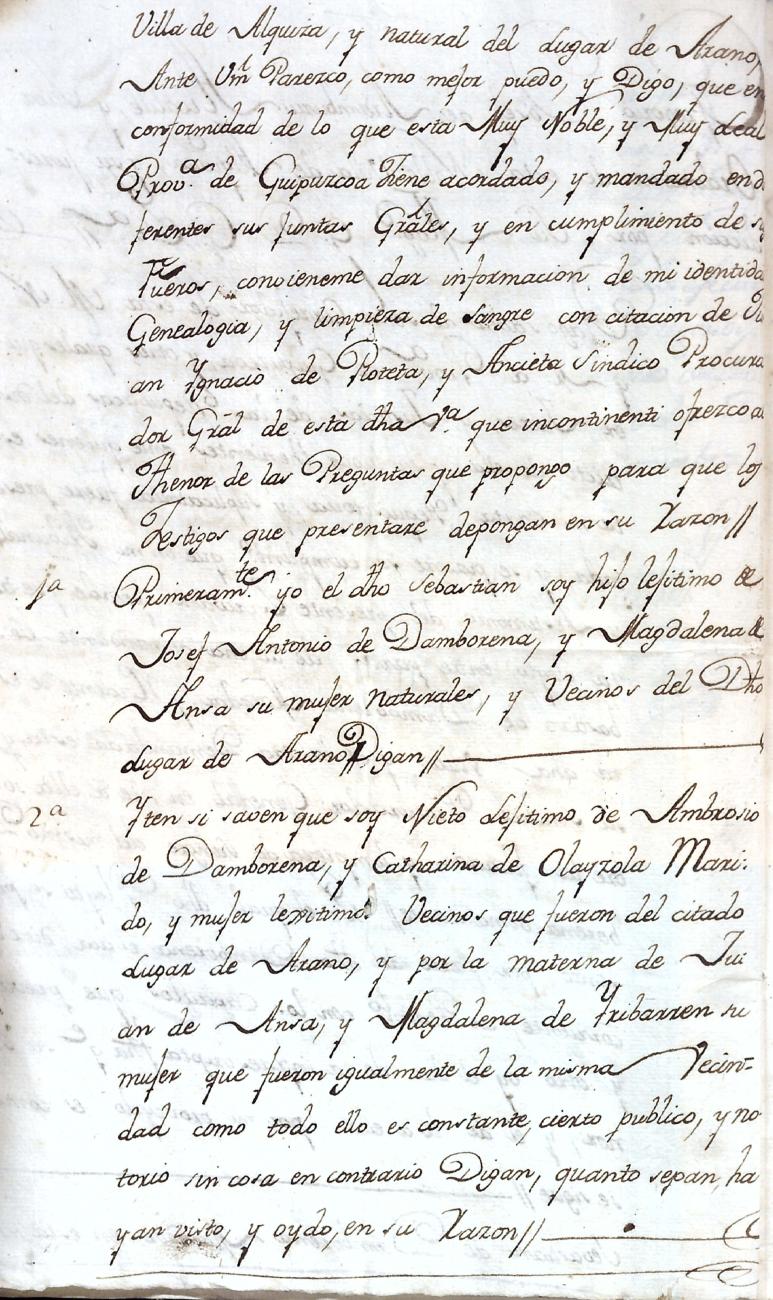 Villa de Alquiza, y natural del Lugar de Arano,
Ante Vm̃ Parezco, como mejor puedo, y Digo, que en
conformidad de lo que esta Muy Noble, y Muy Leal
Provª. de Guipuzcoa tiene acordado, y mandado en di
ferentes sus Juntas Grãles, y en cumplimiento de su
Fueros, convieneme dar informacion de mi identida
Genealogia, y limpieza de sangre con citacion de Ju
an Ygnacio de Ploteta, y Ancieta Sindico Procura
dor Grãl de esta dha Vª. que incontinenti ofrezco al
Thenor de las Preguntas que propongo para que los
Testigos que presentare depongan en su Razon //
1ª Primeramᵗᵉ. yo el dho Sebastian soy hijo lejitimo de
Josef Antonio de Damborena, y Magdalena de
Ansa su mujer naturales, y Vecinos del Dho
Lugar de Arano Digan //
2ª Yten si saven que soy Nieto Lejitimo de Ambrosio
de Damborena, y Catharina de Olayzola Mari:
do, y mujer lexitimos Vecinos que fueron del citado
Lugar de Arano, y por la materna de Ju:
an de Ansa, y Magdalena de Yribarren su
mujer que fueron igualmente de la misma Vecin=
dad como todo ello es constante, cierto publico, y no
torio sin cosa en contrario Digan, quanto sepan, ha
yan visto, y oydo, en su Razon //